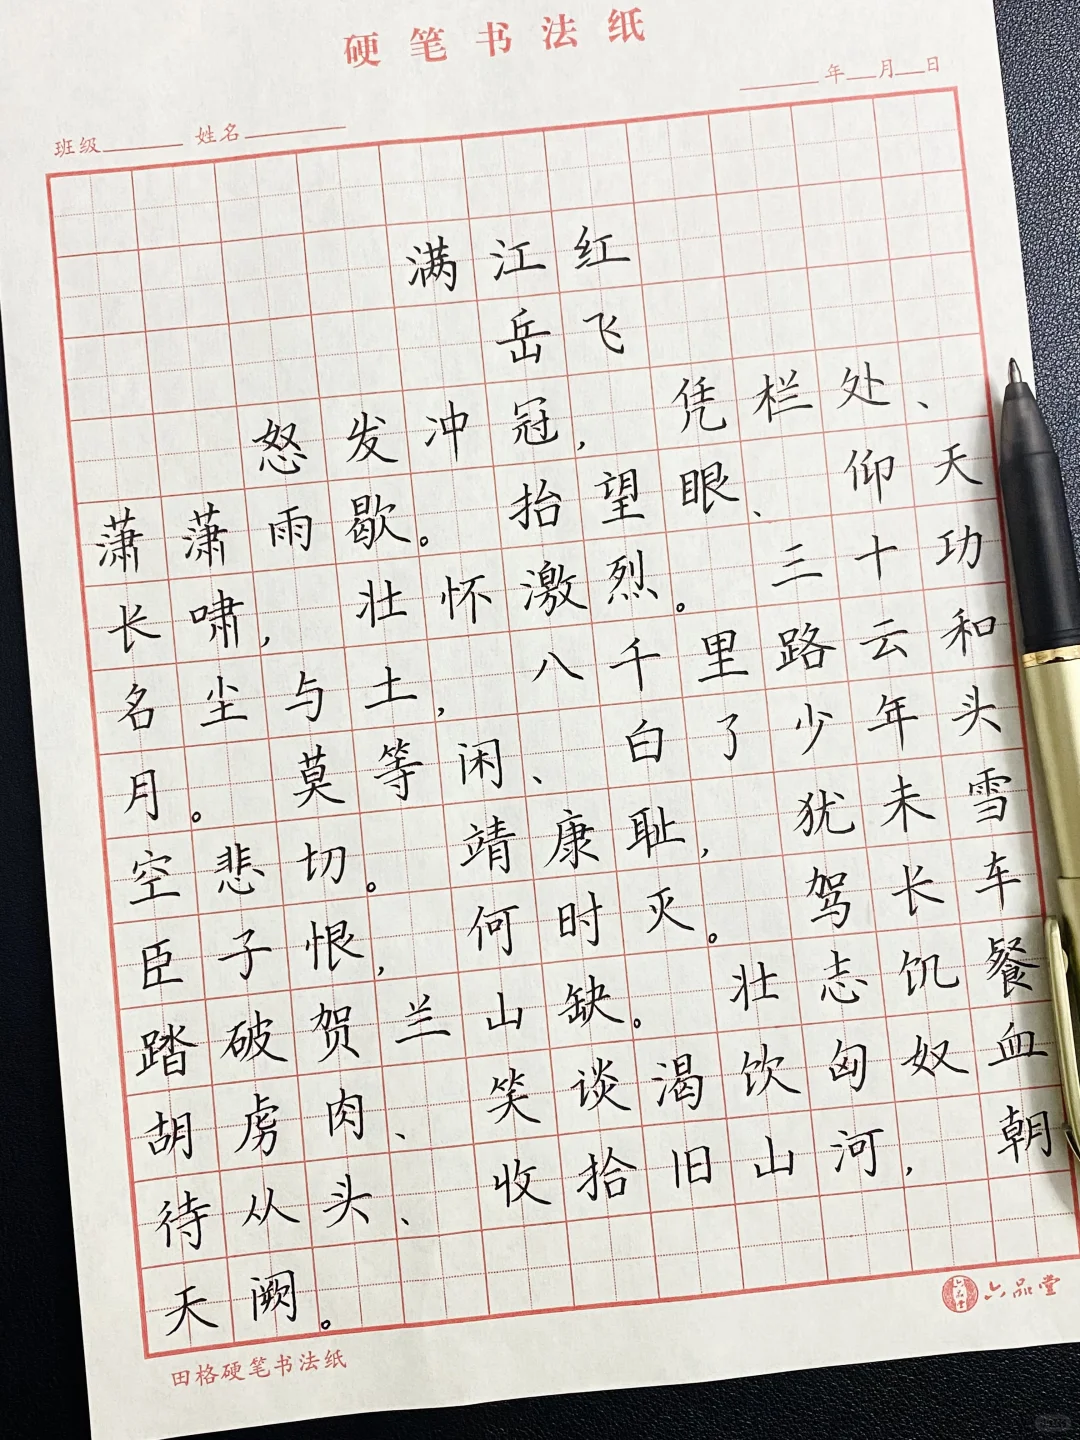 硬笔书法纸
年 月 日
班级 姓名
满江红
岳飞
怒发冲冠，凭栏处、
潇潇雨歇。抬望眼、仰天
长啸，壮怀激烈。三十功
名尘与土，八千里路云和
月。莫等闲、白了少年头
空悲切。靖康耻，犹未雪
臣子恨，何时灭。驾长车
踏破贺兰山缺。壮志饥餐
胡虏肉、笑谈渴饮匈奴血
待从头、收拾旧山河，朝
天阙。
六品堂
六品堂
田格硬笔书法纸